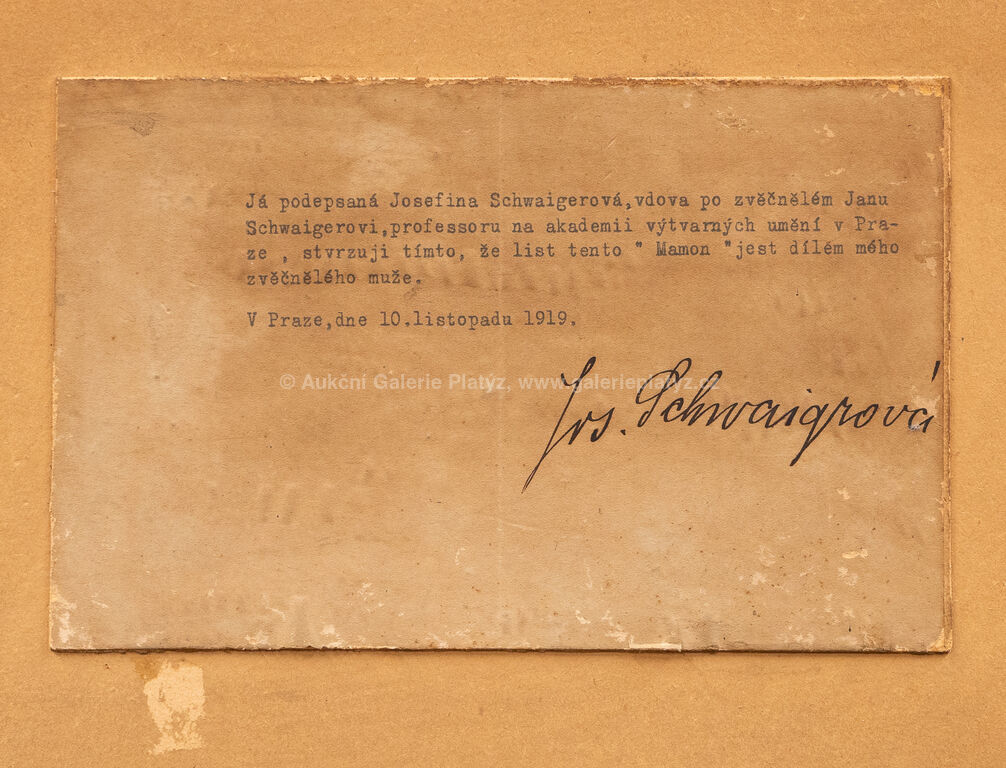 Já podepsaná Josefina Schwaigerová,vdova po zvěčnělém Janu
Schwaigerovi,professoru na akademii výtvarných umění v Pra-
ze , stvrzuji tímto, že list tento " Mamon "jest dílém mého
zvěčnělého muže.
V Praze,dne 10.listopadu 1919.
© Aukční Galerie Platýz, www.galerieplatyz.cz
Jos. Schwaigrová